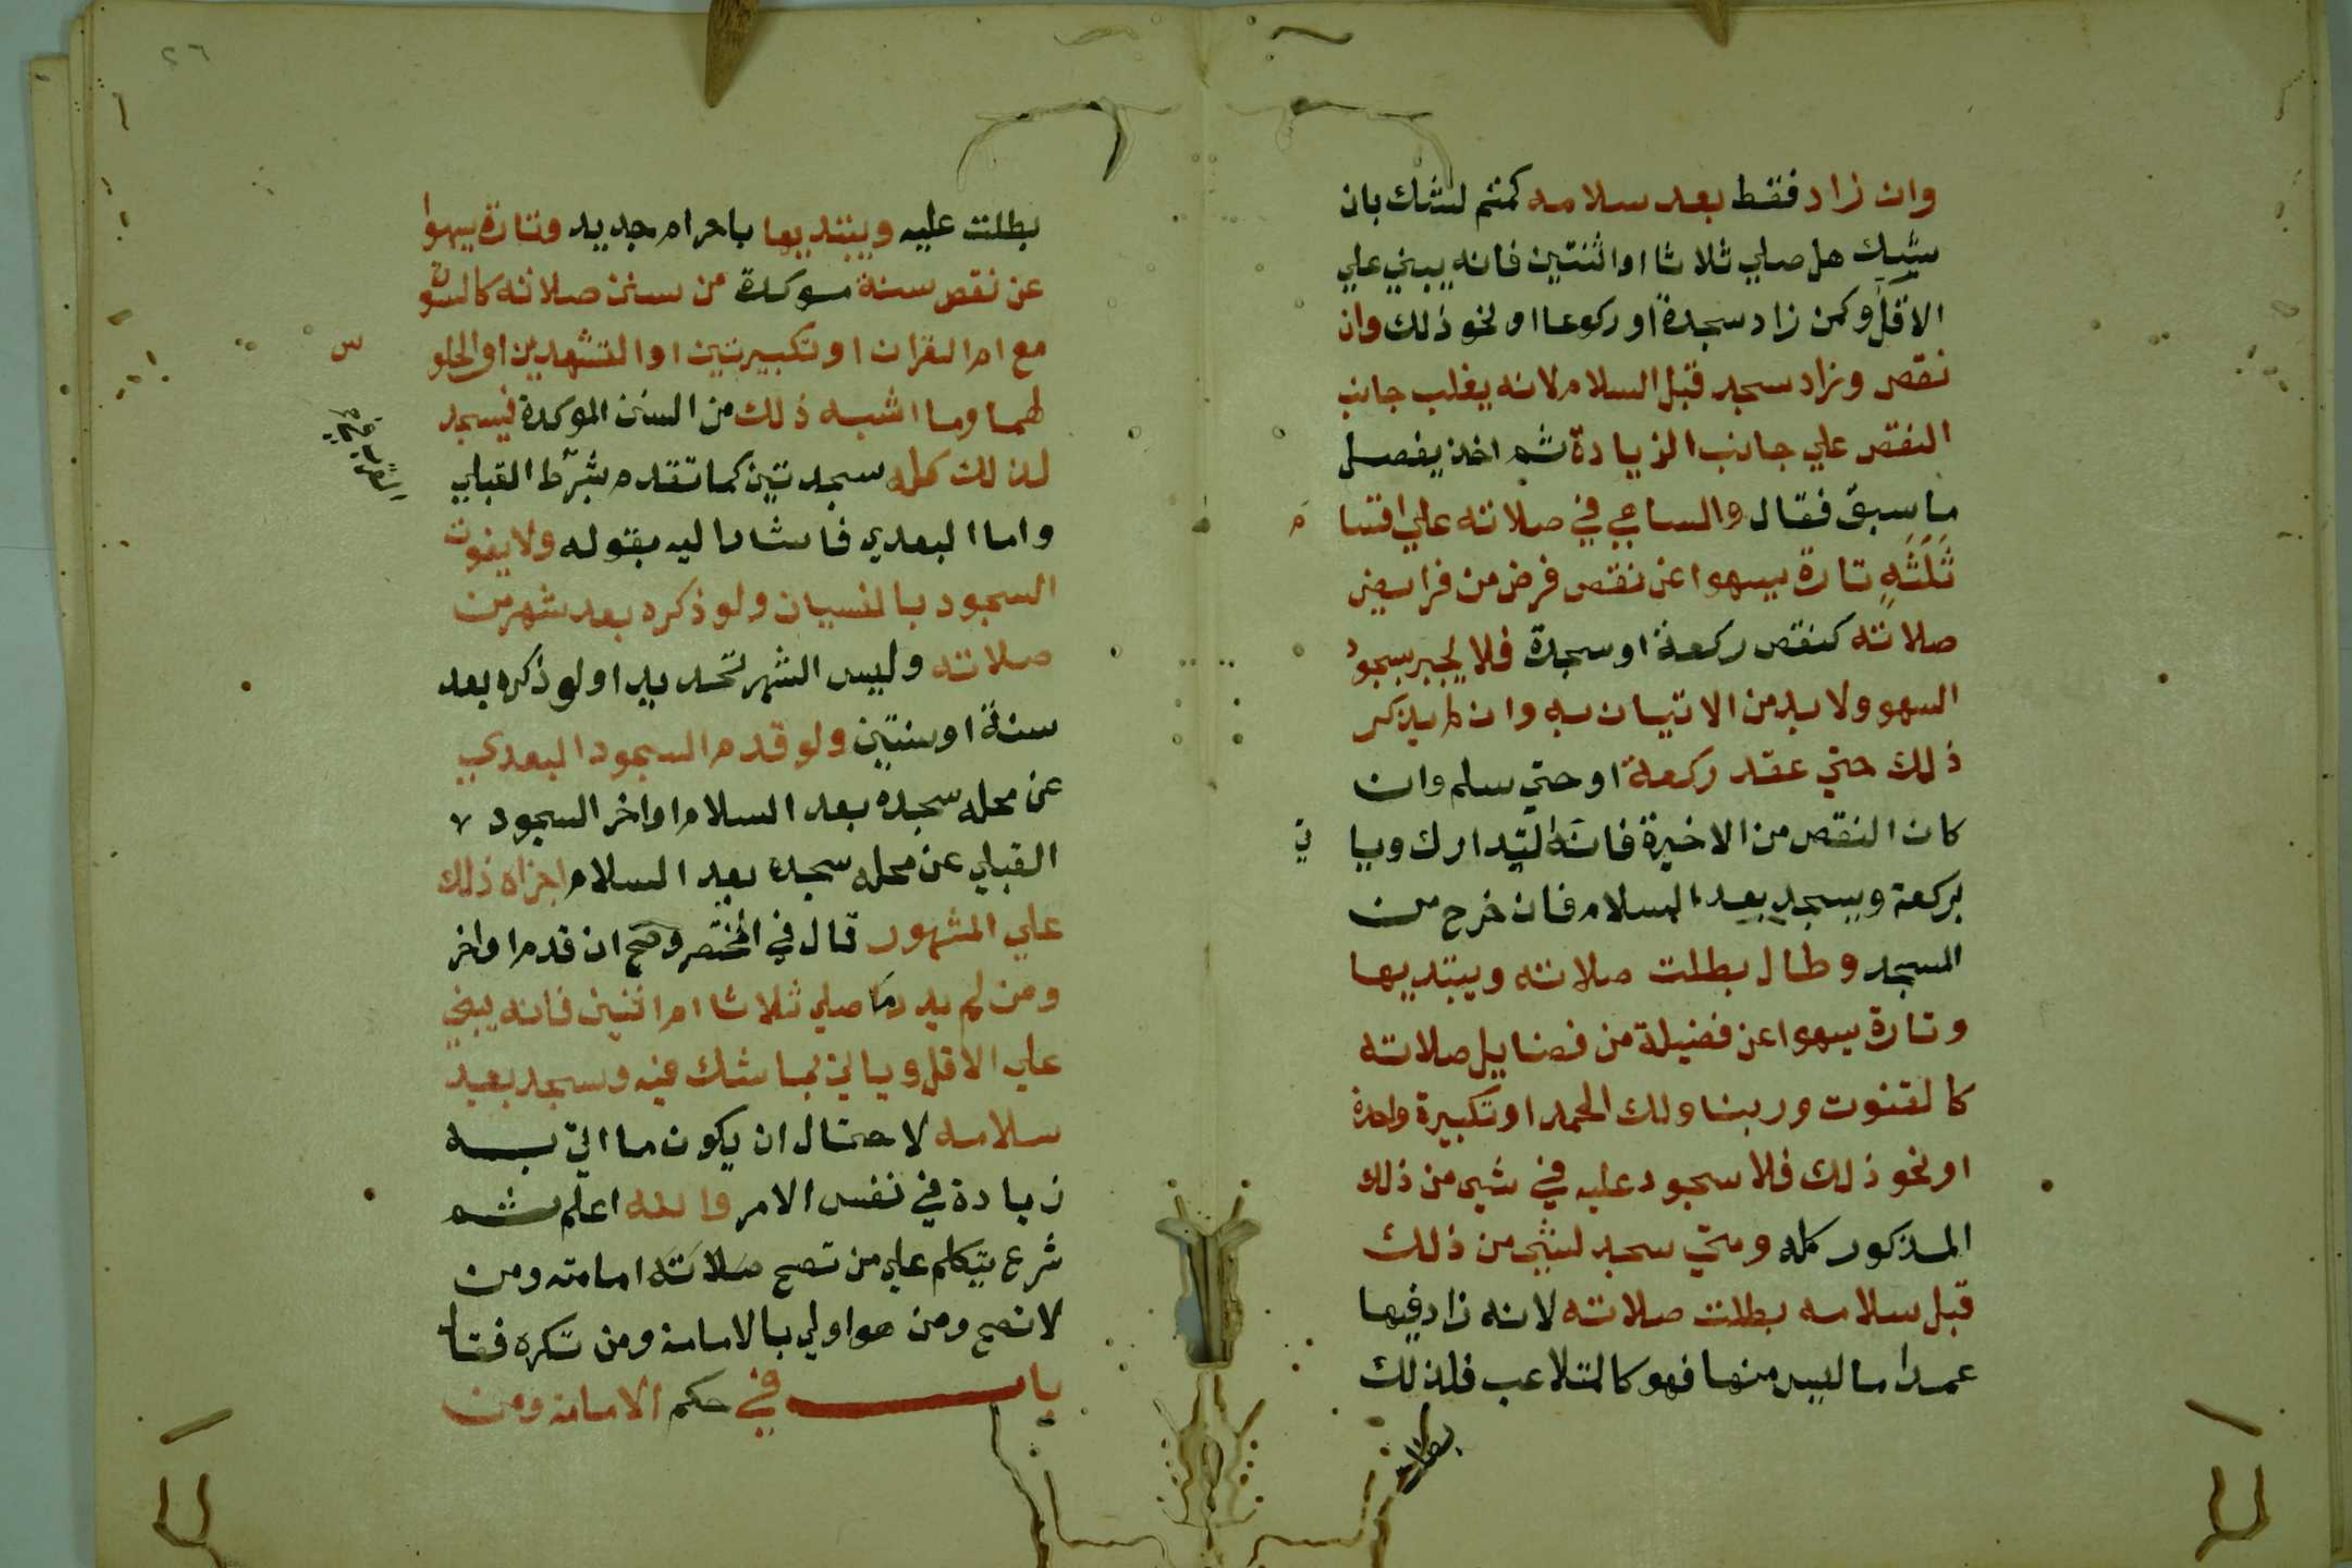 وان زاد فقط بعد سلامه كمتم لشك بان
يشك هل صلي ثلاثا او اثنتين فانه يبني علي
الاقل وكمن زاد سجدة او ركوعا او نحو ذلك وان
نقص وزاد سجد قبل السلام لانه يغلب جانب
النقص علي جانب الزيادة ثم اخذ يفصل
ما سبق فقال والساهي في صلاته علي اقسا
م
ثلثه تارة يسهوا عن نقص فرض من فرايض
صلاته كنقص ركعة او سجدة فلا يجبر بسجود
السهو ولا بد من الاتيان به وان لم يذكر
ذلك حتي عقد ركعة او حتي سلم وان
كان النقص من الاخيرة فانه ليتدارك ويا
تي
بركعة ويسجد بعد السلام فان خرج من
المسجد وطال بطلت صلاته ويبتديها
وتارة يسهوا عن فضيلة من فضايل صلاته
كالقنوت وربنا ولك الحمد او تكبيرة واحدة
او نحو ذلك فلا سجود عليه في شي من ذلك
المذكور كله ومتي سجد لشي من ذلك
قبل سلامه بطلت صلاته لانه زاد فيها
عمدا ما ليس منها فهو كالمتلاعب فلذلك
بطلت
٢٦
بطلت عليه ويبتديها باحرام جديد وتارة يسهوا
عن نقص سنة موكدة من سنن صلاته كالسورة
مع ام القران او تكبيرتين او التشهدين او الجلو
س
لهما وما اشبه ذلك من السنن الموكدة فيسجد
لذلك كله سجدتين كما تقدم بشرط القبلي
واما البعدي فاشار اليه بقوله ولا يفوت
السجود بالنسيان ولو ذكره بعد شهر من
صلاته وليس الشهر تحديدا ولو ذكره بعد
سنة او سنتين ولو قدم السجود البعدي
عن محله سجده بعد السلام او اخر السجود
القبلي عن محله سجده بعد السلام اجزاه ذلك
علي المشهور قال في المختصر وصح ان قدم او اخر
ومن لم يدر ما صلي ثلاثا ام اثنين فانه يبني
علي الاقل وياتي بما شك فيه وسجد بعد
سلامه لاحتمال ان يكون ما اتي به
زيادة في نفس الامر والله اعلم ثم
شرع يتكلم علي من تصح صلاته امامته ومن
لا تصح ومن هو اولي بالامامة ومن تكره فقال
باب في حكم الامامة ومن